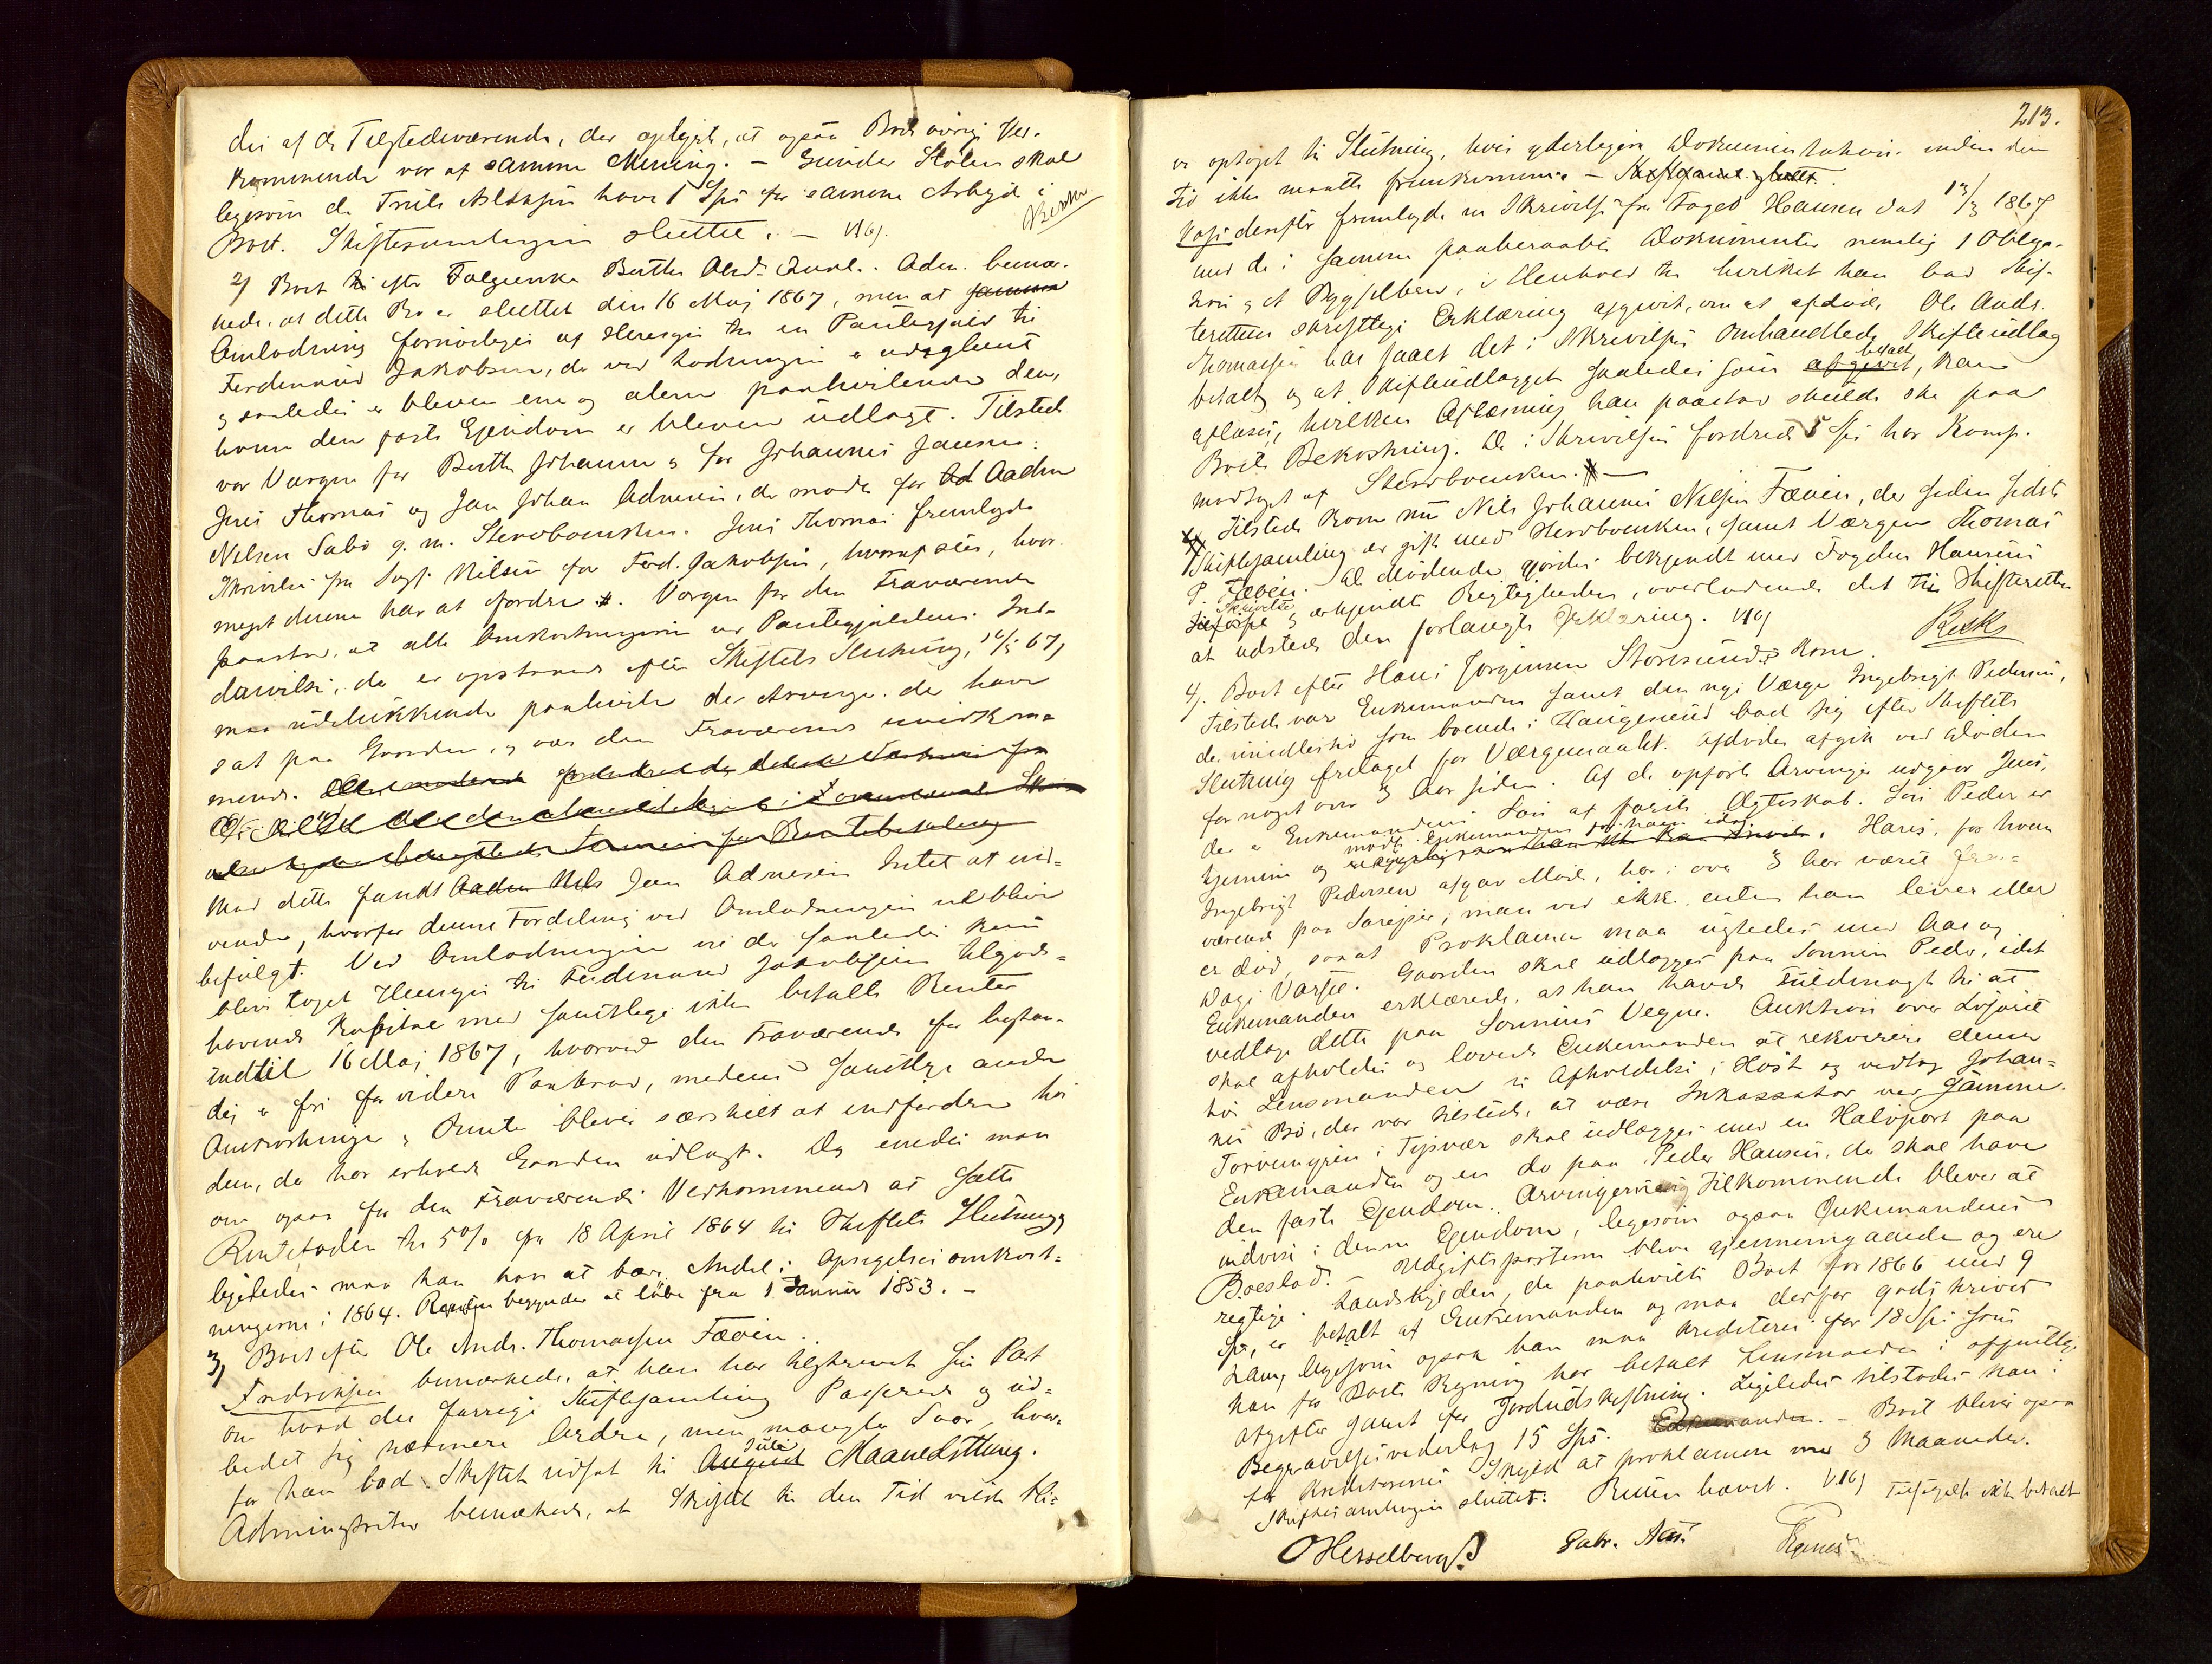 af de Tilstedeværende, der oplyste, at ogsaa Boets øvrige Ved-
kommende var af samme Mening. – Gunder Stølen skal
ligesom de Truls Aslaksen have 1 Spd for samme Arbeide i
Boet. Skiftesamlingen sluttet. –
2) Boet efter Folgeenke Berthe Abrd. Adm. bemær-
kede, at dette Bo er sluttet den 16 Maj 1867, men at
Omlodning fornødiges af Hensyn til en Pantegjæld til
Ferdinand Jakobsen, der ved Lodningen er udeglemt
og saaledes er bleven ene og alene paahvilende den,
hvem den faste Ejendom er bleven udlagt. Tilstede
var Værgen for Berthe Johanne og for Johannes Jansen:
Jens Thomas og Jan Johan Adnesen, der møder for Aadne
Nilsen Sabø g. m. Stervboenken. Jens Thomas fremlagde
Skrivelse fra Sagf. Nilsen for Ferd. Jakobsen, hvoraf sees, hvor
meget denne har at fordre. Værgen for den Fraværende
paastod, at alle Omkostningerne ved Pantegjælden. Ind-
darvelse, der er opstaaede efter Skiftets Slutning, 16/5 67,
maa udelukkende paahvile de Arvinge, der have
sat paa Gaarden, og var den Fraværende uvedkom-
mende.
Mod dette fandt Jan Adnesen Intet at ind-
vende, hvorfor denne Fordeling ved Omlodningen vil blive
befulgt. Ved Omlodningen vil der saaledes kun
blive taget Hensyn til Ferdinand Jakobsens tilgode-
havende Kapital med samtlige ikke betalte Renter
indtil 16 Maj 1867, hvorved den Fraværende
er fri for videre Paakrav, medens samtlige andre
Omkostninger og Renter bliver særskilt at indfordre hos
dem, der har erholdt Gaarden udlagt. Og enedes man
om ogsaa for den Fraværendes Vedkommende at sætte
Rentefoden til 5% fra 18 April 1864 til Skiftets Slutning,
ligeledes maa han have at bære Andel i Opsigelsesomkost-
ningerne i 1864. Renten begynder at løbe fra 1 Januar 1853. –
3) Boet efter Ole Andr. Thomassen Fæøen.
Fredriksen bemærkede, at han har tilskrevet sin Part
om hvad der forrige Skiftesamling Passerede og ud-
bedet sig nærmere Ordre, men mangler Svar, hvor-
for han bad Skiftet udsat til August Juli Maanedsthing.
Administrator bemærkede, at Skiftet til den Tid vilde bli-
213.
ve optaget til Slutning, hvis yderligere Dokumentation inden den
Tid ikke maatte fremkomme –
derefter fremlagde en Skrivelse fra Foged Hansen dat 13/3 1867
med de i samme paaberaabte Dokumenter nemlig 1 Obliga-
tion og et Byggselbrev, i Henhold til hvilket han bad Skif-
terettens skriftlige Erklæring afgivet, om at afdøde Ole Andr.
Thomassen har faaet det i Skrivelsen omhandlede Skifteudlæg
betalt og at Skifteudlægget saaledes som afgivet betalt, kan
aflæses, hvilken Aflæsning han paastod skulde ske paa
Boets Bekostning. De i Skrivelsen fordrede 5 Spd har Komp.
modtaget af Stervboenken. –
Tilstede kom nu Nils Johannes Nilsen Fæøen, der siden sidste
Skiftesamling er gift med Stervboenken, samt Værgen Thomas
P. Fæøen. De Mødende gjordes bekjendt med Fogden Hansens
Skrivelse og erkjendte Rigtigheden, overladende det til Skifteretten
at udstede den forlangte Erklæring.
4) Boet efter Hans Jørgensen Storesunds Kone.
Tilstede var Enkemanden samt den nye Værge Ingebrigt Pedersen,
der imidlertid som boende i Haugesund bad sig efter Skiftets
Slutning fritaget for Værgemaalet. Afdøde afgik ved Døden
for noget over 3 Aar siden. Af de opførte Arvinge udgaar Jens,
der er Enkemandens Søn af første Ægteskab. Søn Peder er
hjemme og møder Enkemanden for ham idag. Hans, for hvem
Ingebrigt Pedersen afgav Møde, har i over 3 Aar været fra-
værende paa Søreiser, man ved ikke enten han lever eller
er død, saaat Proklama maa udstedes med Aar og
Dags Varsel. Gaarden skal udlægges paa Sønnen Peder, idet
Enkemanden erklærede, at han havde Fuldmagt til at
vedtage dette paa Sønnens Vegne. Auktion over Løsøre
skal afholdes og lovede Enkemanden at rekvirere denne
hos Lensmanden til Afholdelse i Høst og vedtog Johan-
nes Bø, der var tilstede, at være Inkassator ved samme.
i Tysvær skal udlægges med en Halvpart paa
Enkemanden og en do paa Peder Hansen, der skal have
den faste Ejendom. Arvingernes Tilkommende bliver at
indvise i denne Ejendom, ligesom ogsaa Enkemandens
Boeslod. – Udgiftsposterne bleve gjennemgaaede og ere
rigtige. Landskylden, der paahvilte Boet for 1866 med 9
Spd, er betalt af Enkemanden og maa derfor godskrives
ham, ligesom ogsaa han maa krediteres for 18 Spd som
han for Boets Regning har betalt Lensmanden i offentlige
Afgifter samt for Jordudskiftning. Ligeledes tilstodes han i
Begravelsesvederlag 15 Spd. – Boet bliver ogsaa
for Kreditorernes Skyld at proklamere med 3 Maaneder.
Skiftesamlingen sluttet. Retten hævet.
OHesselberg